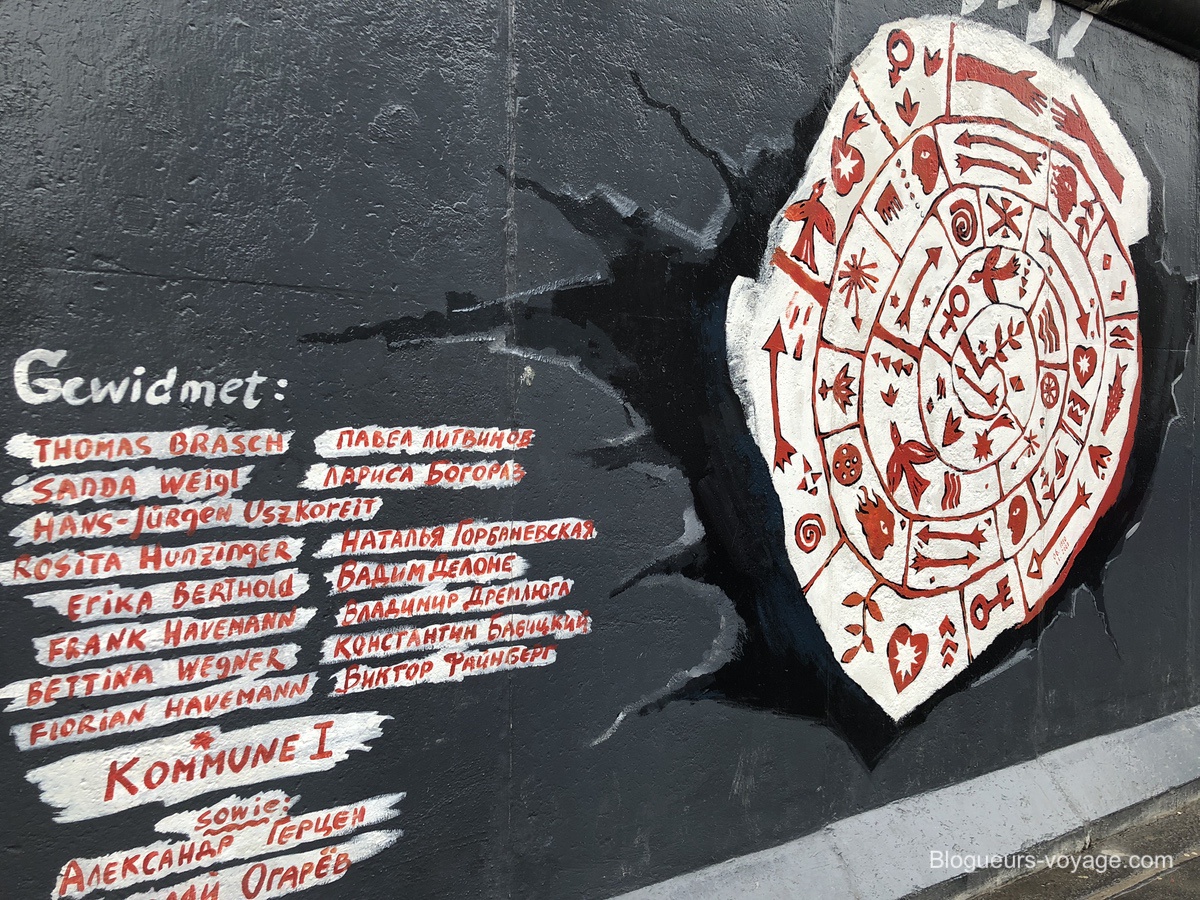 Gewidmet:
THOMAS BRASCH
SANDA WEIGL
HANS-JÜRGEN USZKOREIT
ROSITA HUNZINGER
ERIKA BERTHOLD
FRANK HAVEMANN
BETTINA WEGNER
FLORIAN HAVEMANN
KOMMUNE I
sowie:
АЛЕКСАНДР ГЕРЦЕН
ОГАРЁВ
ПАВЕЛ ЛИТВИНОВ
ЛАРИСА БОГОРАЗ
НАТАЛЬЯ ГОРБАНЕВСКАЯ
ВАДИМ ДЕЛОНЕ
ВЛАДИМИР ДРЕМЛЮГА
КОНСТАНТИН БАБИЦКИЙ
ВИКТОР ФАЙНБЕРГ
Blogueurs-voyage.com